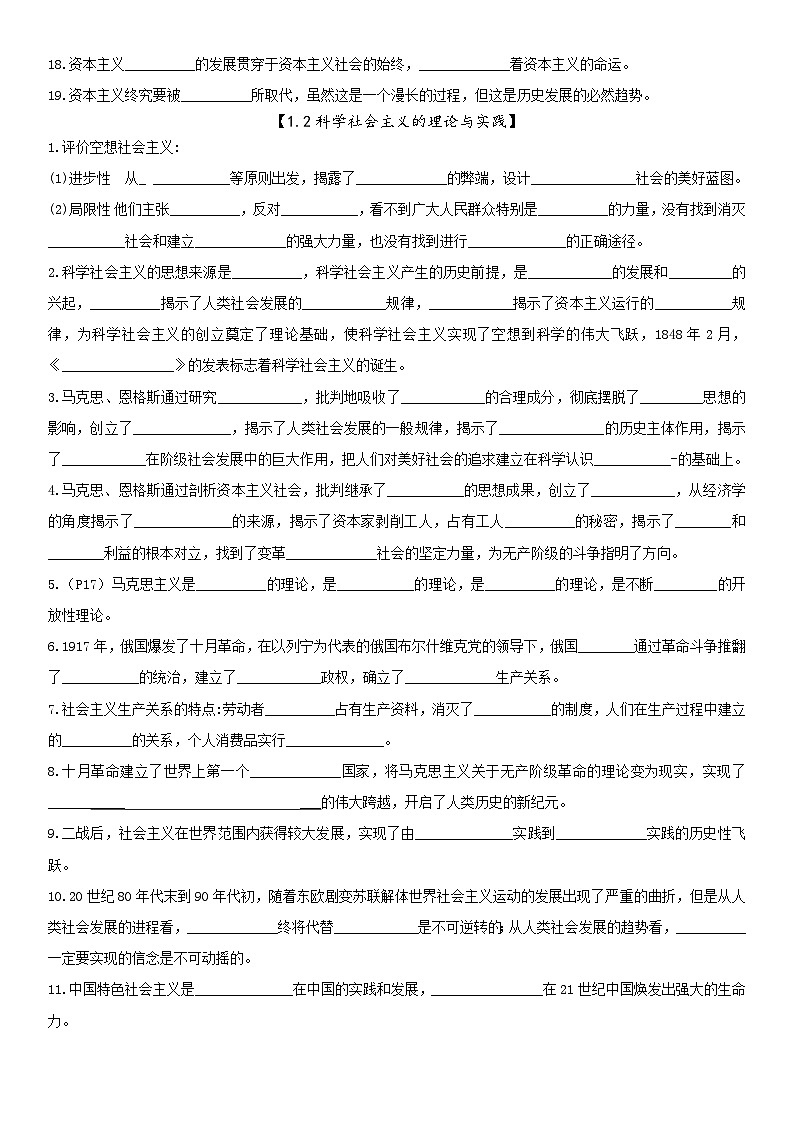 18.资本主义__________的发展贯穿于资本主义社会的始终，_____________着资本主义的命运。
19.资本主义终究要被__________所取代，虽然这是一个漫长的过程，但这是历史发展的必然趋势。
【1.2科学社会主义的理论与实践】
1.评价空想社会主义:
(1)进步性 从_ ___________等原则出发，揭露了_____________的弊端，设计_______________社会的美好蓝图。
(2)局限性 他们主张__________，反对___________，看不到广大人民群众特别是__________的力量，没有找到消灭
___________社会和建立_____________的强大力量，也没有找到进行______________的正确途径。
2.科学社会主义的思想来源是__________，科学社会主义产生的历史前提，是____________的发展和_________的
兴起，__________揭示了人类社会发展的____________规律，____________揭示了资本主义运行的___________规
律，为科学社会主义的创立奠定了理论基础，使科学社会主义实现了空想到科学的伟大飞跃，1848年2月，
《________________》的发表标志着科学社会主义的诞生。
3.马克思、恩格斯通过研究____________，批判地吸收了____________的合理成分，彻底摆脱了_________思想的
影响，创立了______________，揭示了人类社会发展的一般规律，揭示了_______________的历史主体作用，揭示
了____________在阶级社会发展中的巨大作用，把人们对美好社会的追求建立在科学认识___________-的基础上。
4.马克思、恩格斯通过剖析资本主义社会，批判继承了___________的思想成果，创立了____________，从经济学
的角度揭示了______________的来源，揭示了资本家剥削工人，占有工人__________的秘密，揭示了________和
________利益的根本对立，找到了变革_____________社会的坚定力量，为无产阶级的斗争指明了方向。
5.（P17）马克思主义是__________的理论，是___________的理论，是__________的理论，是不断_________的开
放性理论。
6.1917年，俄国爆发了十月革命，在以列宁为代表的俄国布尔什维克党的领导下，俄国________通过革命斗争推翻
了___________的统治，建立了____________政权，确立了_____________生产关系。
7.社会主义生产关系的特点:劳动者__________占有生产资料，消灭了___________的制度，人们在生产过程中建立
的__________的关系，个人消费品实行______________。
8.十月革命建立了世界上第一个_____________国家，将马克思主义关于无产阶级革命的理论变为现实，实现了
_______________________________________的伟大跨越，开启了人类历史的新纪元。
9.二战后，社会主义在世界范围内获得较大发展，实现了由______________实践到_____________实践的历史性飞
跃。
10.20世纪80年代末到90年代初，随着东欧剧变苏联解体世界社会主义运动的发展出现了严重的曲折，但是从人
类社会发展的进程看，_____________终将代替____________是不可逆转的；从人类社会发展的趋势看，__________
一定要实现的信念是不可动摇的。
11.中国特色社会主义是______________在中国的实践和发展，________________在21世纪中国焕发出强大的生命
力。